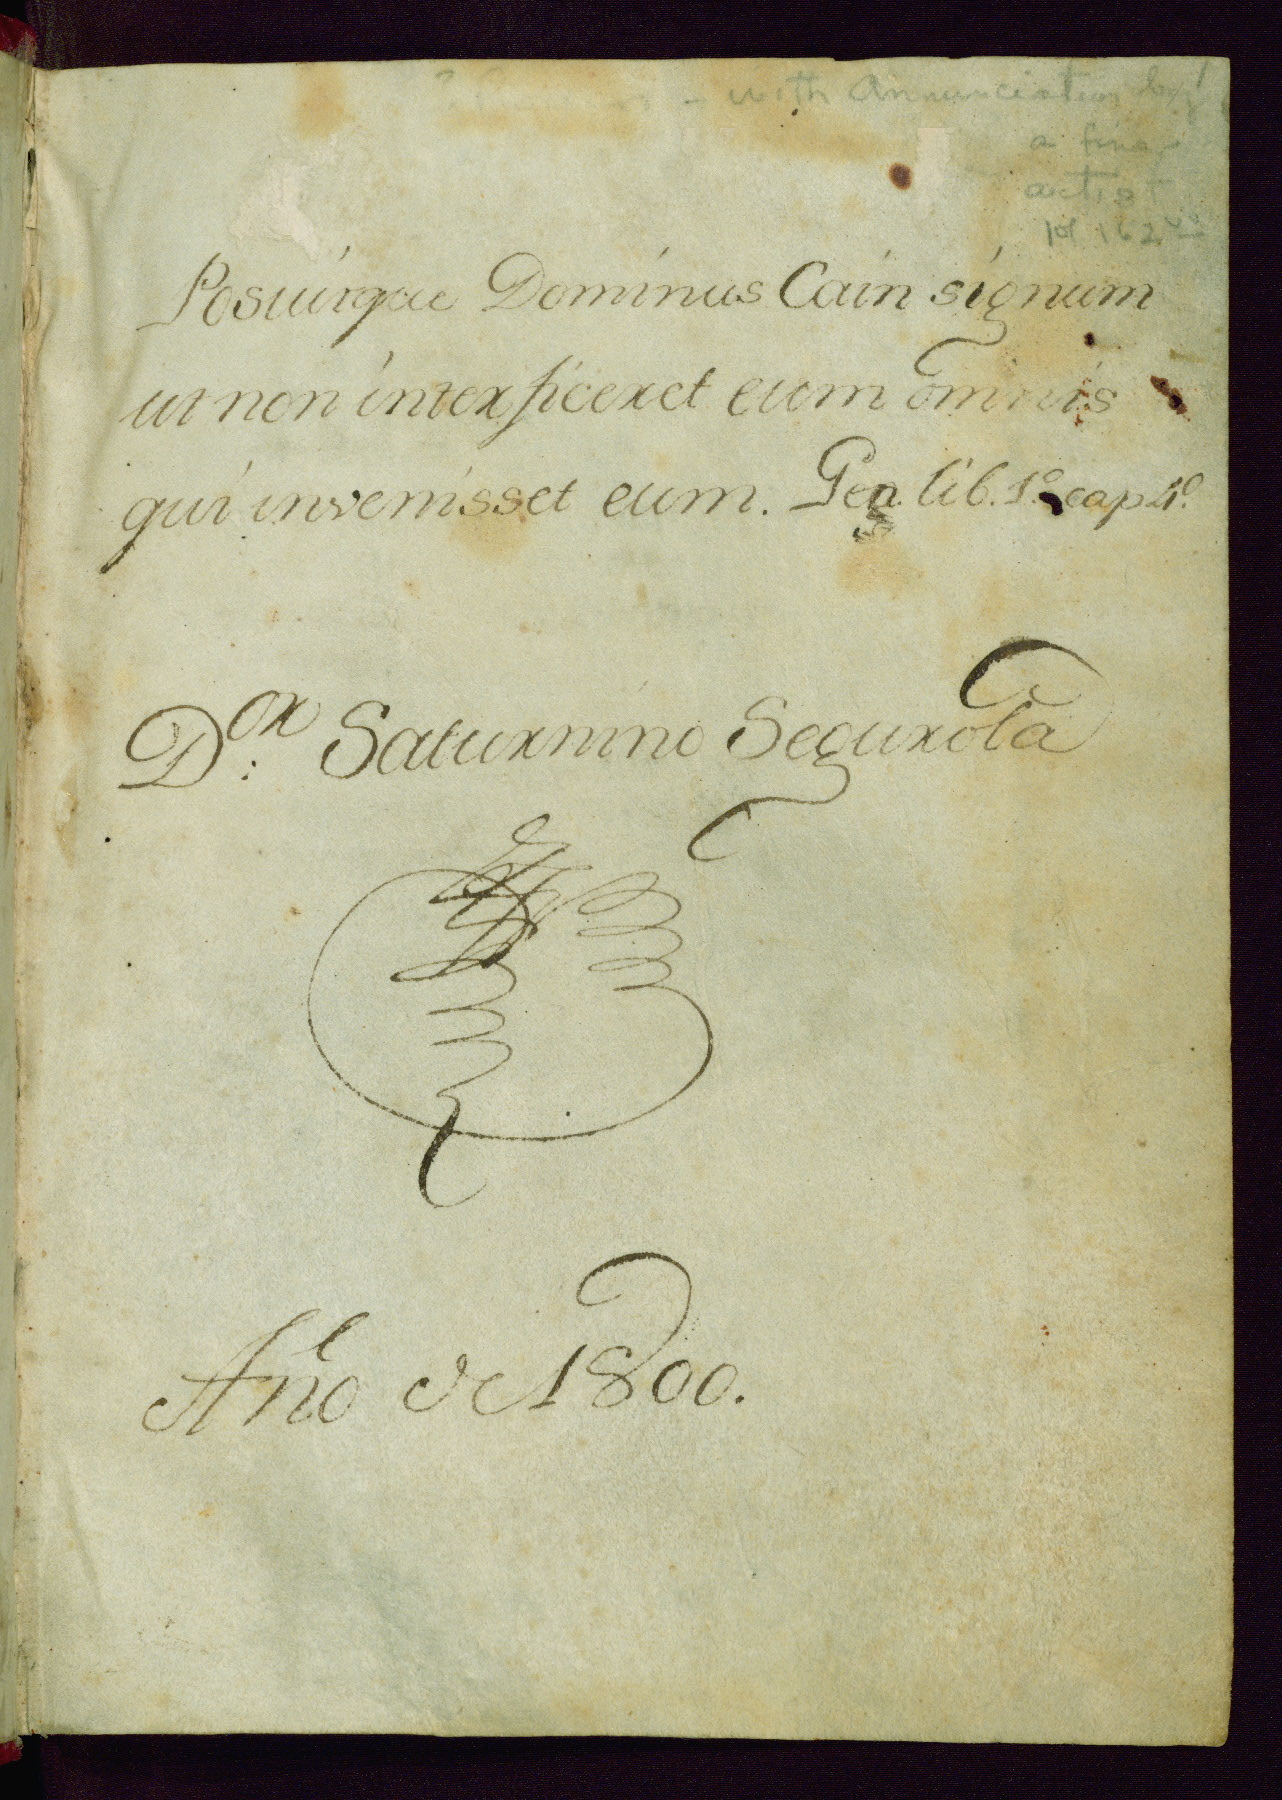 with Annunciation by
a fine
artist
fol 162
Posuitque Dominus Cain signum
ut non interficeret eum omnis
qui invenisset eum. Gen. lib. 1º cap 4º.
Dᵒʳ: Saturnino Segurola
Año de 1800.